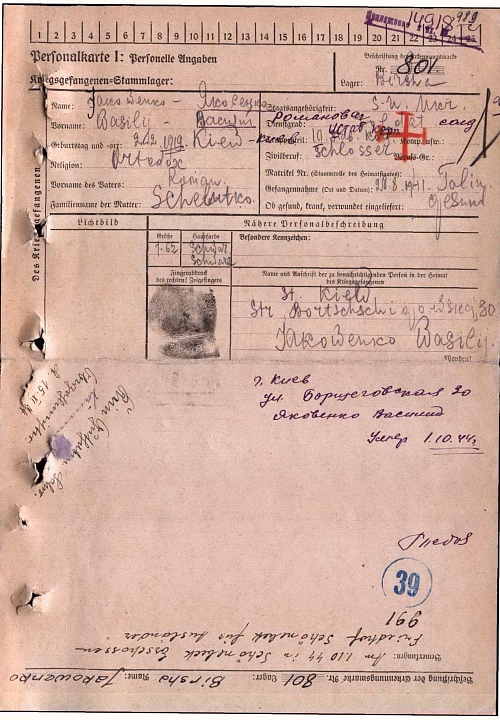 14918/14
989
1 2 3 4 5 6 7 8 9 10 11 12 13 14 15 16 17 18 19 20 21 22 23 24 25
Personalkarte I: Personelle Angaben
Beschriftung der Erkennungsmarke
Nr. 801
Kriegsgefangenen-Stammlager:
Lager: Birsha
Des Kriegsgefangenen
Name: Jakowenko – Яковенко
Staatsangehörigkeit: S-U. Ukr.
Vorname: Basily – Василий
Dienstgrad: Soldat солд
Романовая
Geburtstag und -ort: 2.12.1919. Kiew – Киев
Komp. usw.:
Religion: Ortodox
Zivilberuf: Schlosser
Berufs-Gr.:
Vorname des Vaters: Roman
Matrikel Nr. (Stammrolle des Heimatstaates):
Gefangennahme (Ort und Datum): 28.8.1941. Talin
Familienname der Mutter:
Ob gesund, krank, verwundet eingeliefert: gesund
Lichtbild
Nähere Personalbeschreibung
Größe
Haarfarbe
Besondere Kennzeichen:
1-62
Schwarz
Schwarz
Fingerabdruck
des rechten! Zeigefingers
Name und Anschrift der zu benachrichtigenden Person in der Heimat
des Kriegsgefangenen
St. Kiew
Str. 30
Jakowenko Wasily.
Wenden!
г. Киев
ул. Борщеговская 30
Яковенко Василий
Умер 1.10.44.
39
991
Friedhof Schönebeck für Ausländer
Bemerkungen: Am 1.10.44 in Schönebeck erschossen
Beschriftung der Erkennungsmarke Nr. 801 Lager: Birsha Name: Jakowenko